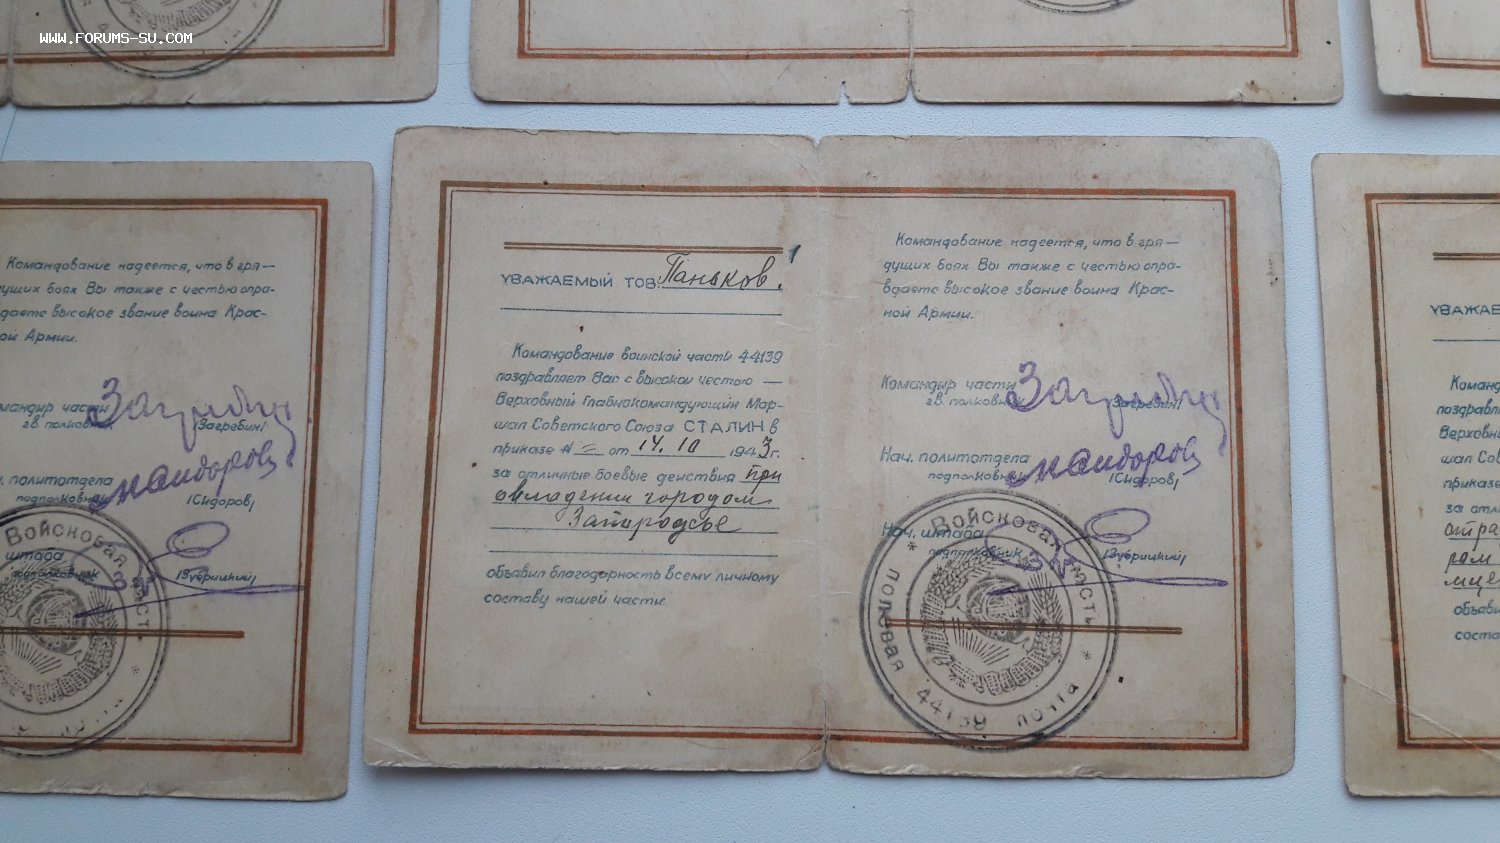 WWW.FORUMS-SU.COM
Командование надеется, что в гря—
дущих боях Вы также с честью опра-
вдаете высокое звание воина Крас-
ной Армии.
мандир части
гв. полковник
/Загребин/
ч. политотдела
подполковник
/Сидоров/
штаба
подполковник
/Зубрицкий/
Войсковая часть
УВАЖАЕМЫЙ ТОВ. Паньков!
Командование воинской часть 44139
поздравляет Вас с высокой честою —
Верховный Главнокомандующий Мар-
шал Советского Союза СТАЛИН в
приказе № = от 14.10 1943 г.
за отличные боевые действия при
овладении городом
Запорожье
объявил благодарность всему личному
составу нашей части.
Командование надеется, что в гря—
дущих боях Вы также с честью опра-
вдаете высокое звание воина Крас-
ной Армии.
Командир части
гв. полковник
/Загребин/
Нач. политотдела
подполковник
/Сидоров/
Нач. штаба
подполковник
/Зубрицкий/
* Войсковая часть *
полевая 44139 почта
УВАЖАЕ
Команд
поздравл
Верховны
шал Сов
приказе
за отли
объяви
соста